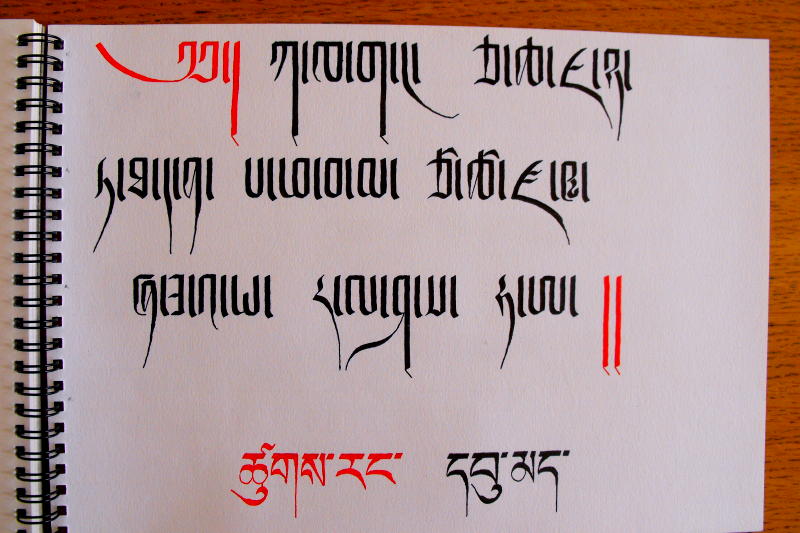 ༄༅།། ཀ་ཁ་ག་ང་ ཅ་ཆ་ཇ་ཉ་
ཏ་ཐ་ད་ན་ པ་ཕ་བ་མ་ ཙ་ཚ་ཛ་ཝ་
ཞ་ཟ་འ་ཡ་ ར་ལ་ཤ་ས་ ཧ་ཨ་ །།
ཚུགས་རང་ དབུ་མད་